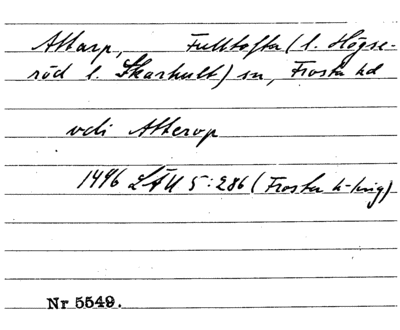 Attarp, Fulltofta (l. Högse-
röd l. Skarhult) sn, Frosta hd
vdi Atterop
1496 LÄU 5:286 (Frosta h-ting)
Nr 5549.